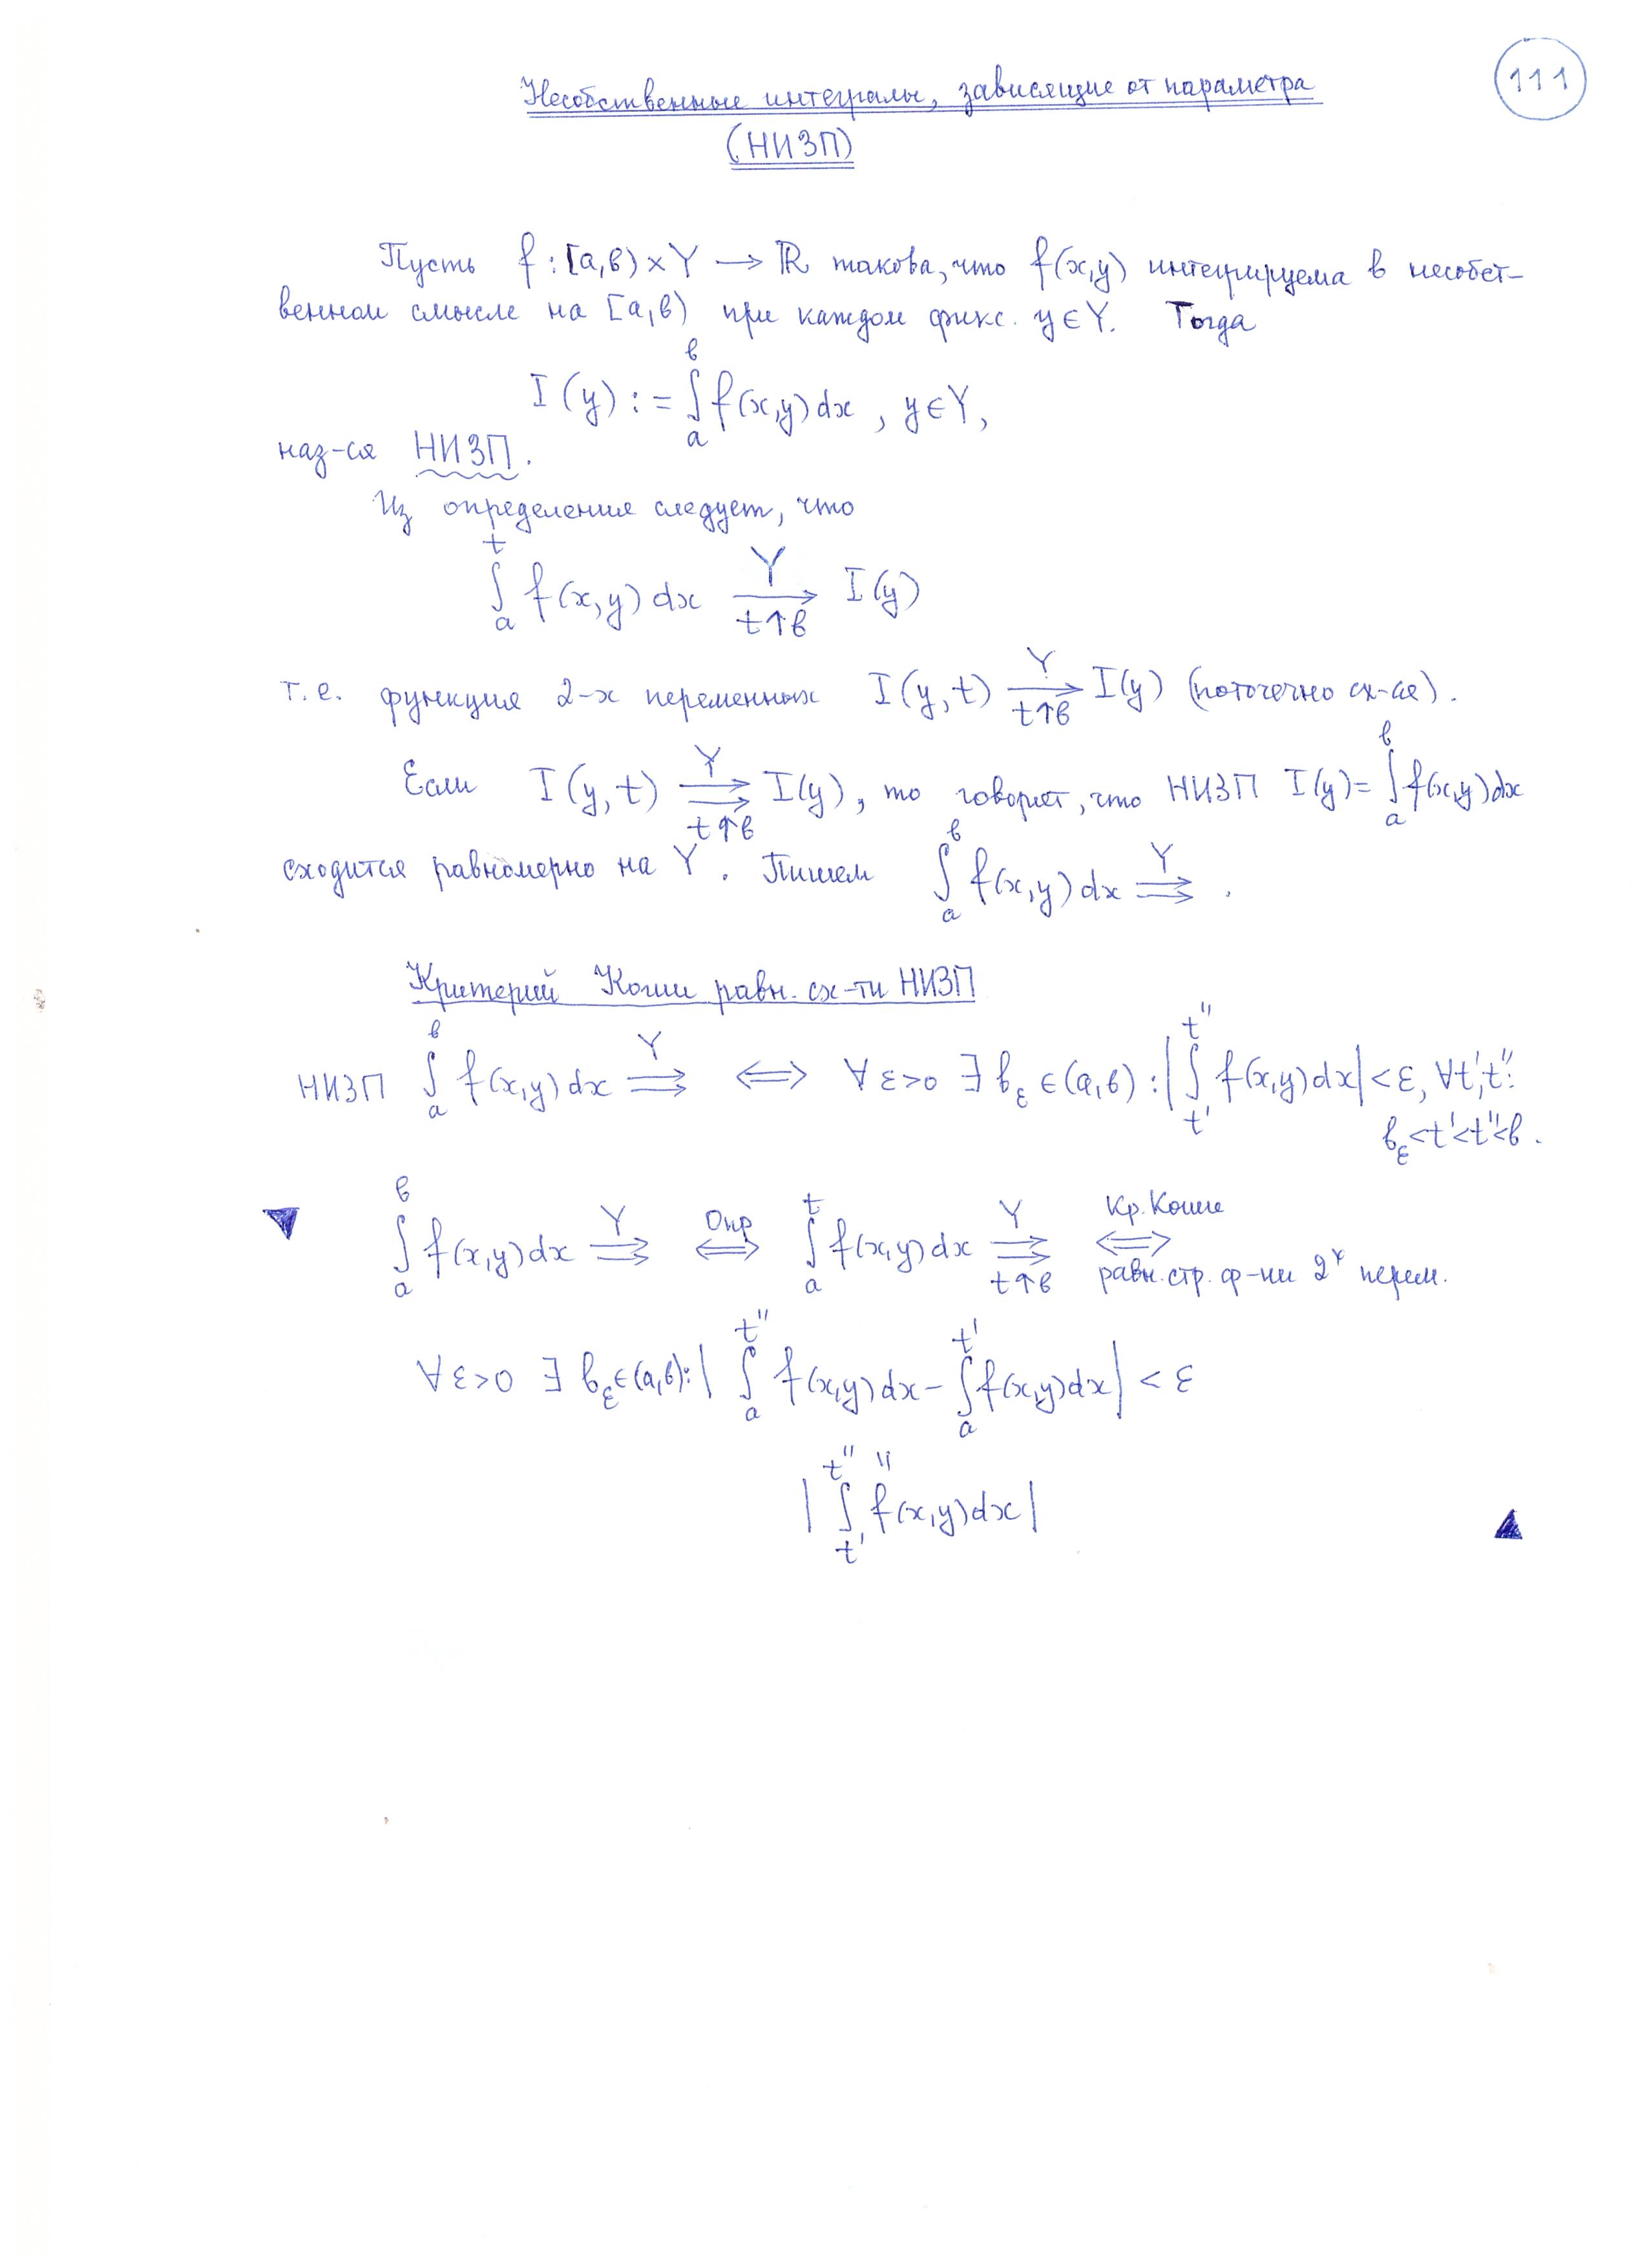 111
Несобственные интегралы, зависящие от параметра
(НИЗП)
Пусть f : [a,b) × Y → ℝ такова, что f(x,y) интегрируема в несобст-
венном смысле на [a,b) при каждом фикс. y ∈ Y. Тогда
I(y) := ∫_a^b f(x,y) dx , y ∈ Y,
наз-ся НИЗП.
Из определения следует, что
∫_a^t f(x,y) dx →^Y_{t↑b} I(y)
т.е. функция 2-х переменных I(y,t) →^Y_{t↑b} I(y) (поточечно сх-ся).
Если I(y,t) ⇉^Y_{t↑b} I(y), то говорят, что НИЗП I(y) = ∫_a^b f(x,y)dx
сходится равномерно на Y. Пишем ∫_a^b f(x,y) dx ⇉^Y .
Критерий Коши равн. сх-ти НИЗП
НИЗП ∫_a^b f(x,y) dx ⇉^Y ⟺ ∀ε>0 ∃ b_ε ∈ (a,b) : |∫_{t'}^{t''} f(x,y)dx| < ε, ∀t',t'':
b_ε<t'<t''<b .
▼ ∫_a^b f(x,y)dx ⇉^Y ⟺^{Опр} ∫_a^t f(x,y)dx ⇉^Y_{t↑b} ⟺^{Кр. Коши}_{равн. стр. ф-ии 2^х перем.}
∀ε>0 ∃ b_ε∈(a,b): | ∫_a^{t''} f(x,y)dx − ∫_a^{t'} f(x,y)dx | < ε
||
| ∫_{t'}^{t''} f(x,y)dx | ▲